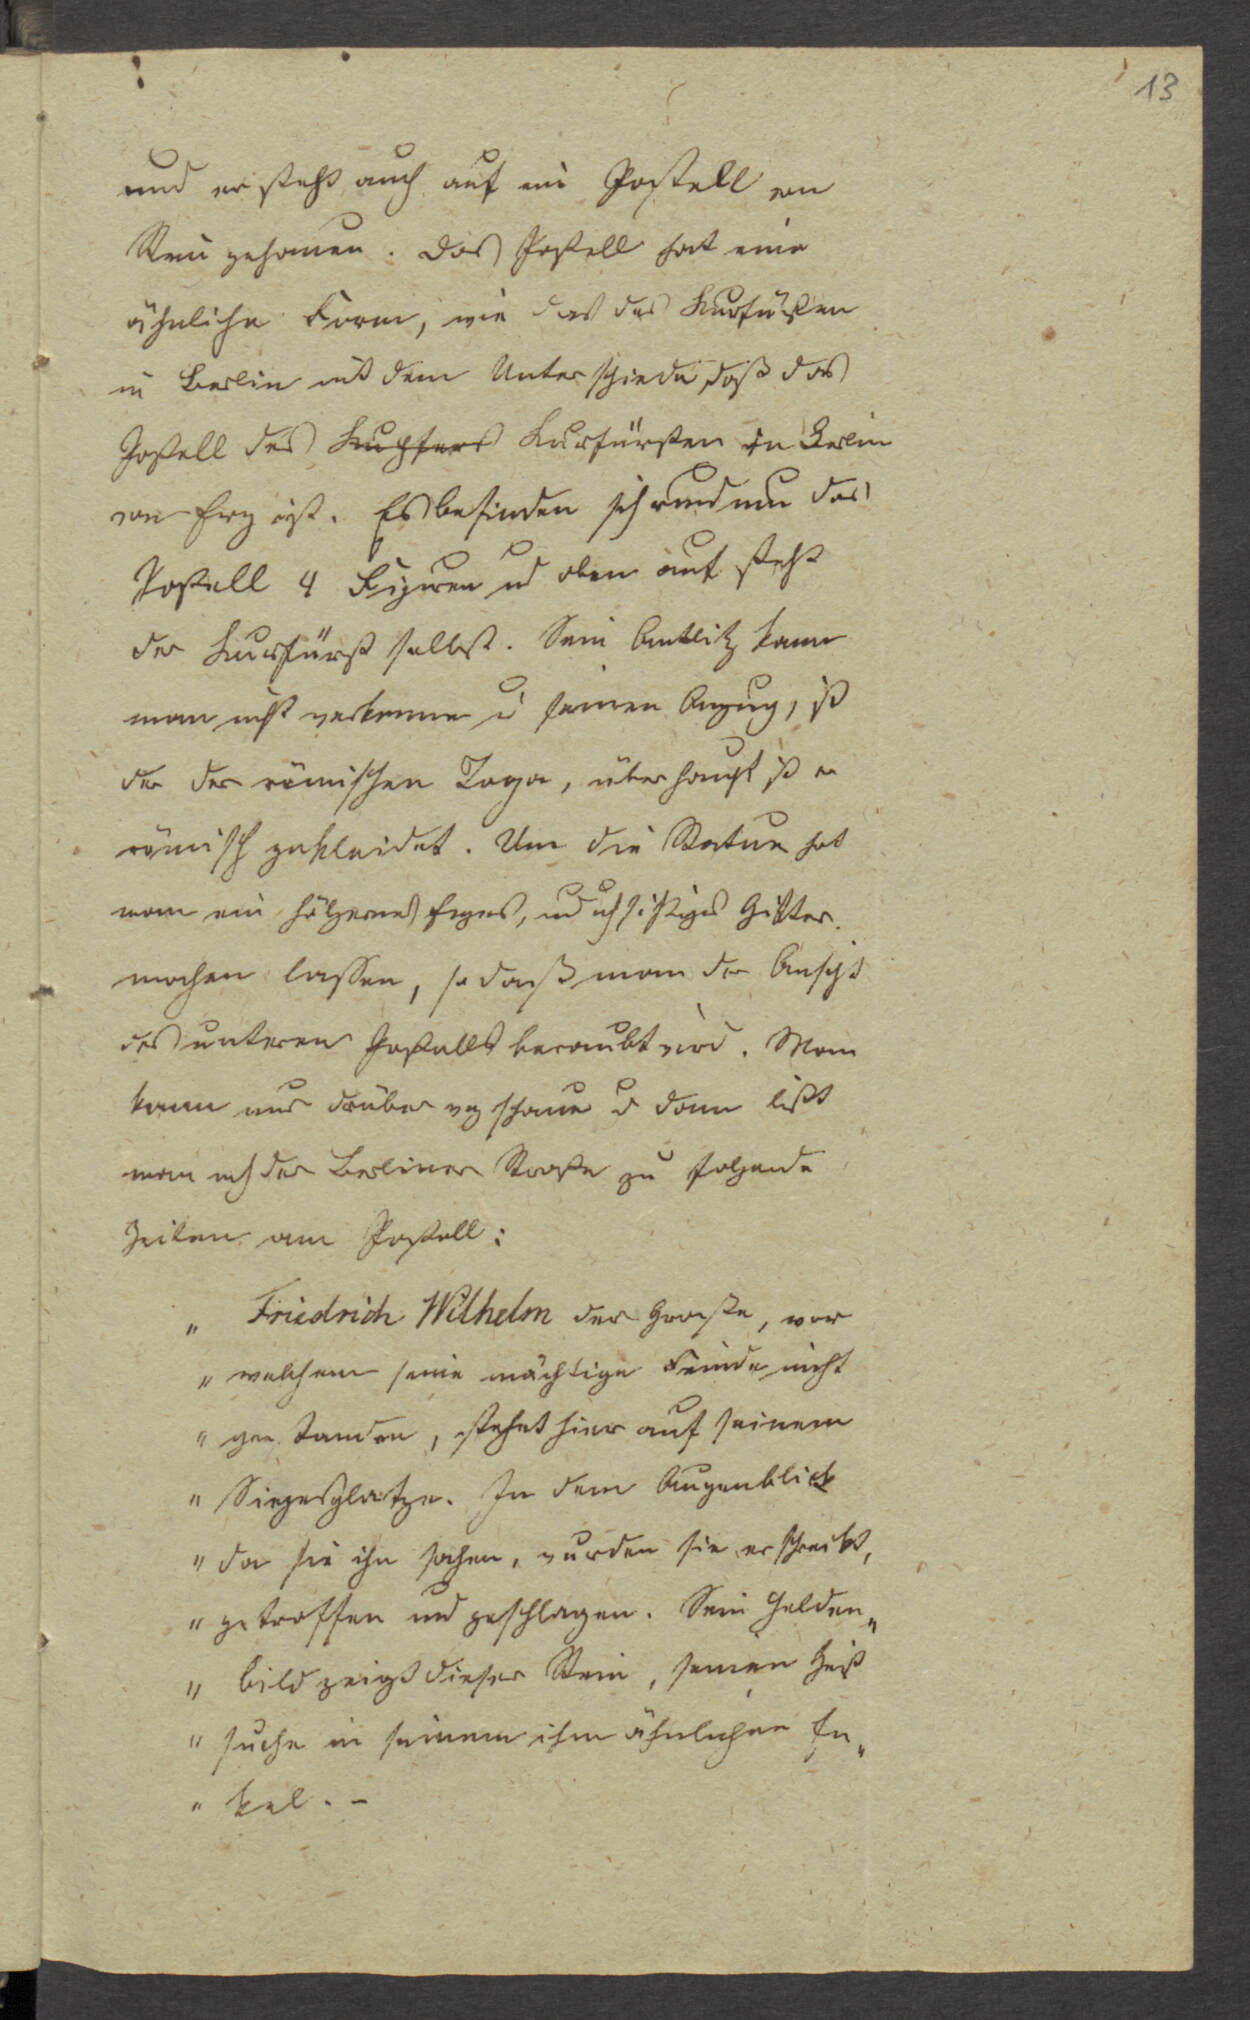 13
und er steht auch auf ein Postell von
Stein gehauen. Das Postell hat eine
ähnliche Form, wie das des Kurfürsten
in Berlin mit dem Unterschiede, daß das
Postell des Kupfers Kurfürsten in Berlin
von Erz ist. Es befinden sich rund um das
Postell 4 Figuren und oben auf steht
der Kurfürst selbst. Sein Antlitz kann
man nicht verkenne u seinen Anzug, ist
der der römischen Toga, überhaupt ist er
römisch gekleidet. Um die Statue hat
man ein hölzernes, und Gitter
machen lassen, so daß man der Ansicht
des unteren Postells beraubt wird. Man
kann nur drüber weg schaue u dann liest
man nach der Berliner Straße zu folgende
Zeilen am Postell:
„ Friedrich Wilhelm der Große, vor
„ welchem seine mächtige Feinde nicht
„ gestanden, stehet hier auf seinem
„ Siegesplatze. In dem Augenblick
„ da sie ihn sahen, wurden sie erschreckt,
„ getroffen und geschlagen. Sein Helden„
„ bild zeigt dieser Stein, seinen Geist
„ suche in seinem ihm ähnlichen En„
„ kel. -